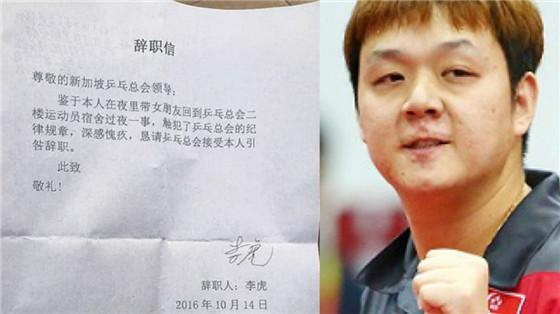 辞职信
尊敬的新加坡乒乓总会领导：
鉴于本人在夜里带女朋友回到乒乓总会二
楼运动员宿舍过夜一事，触犯了乒乓总会的纪
律规章，深感愧疚，恳请乒乓总会接受本人引
咎辞职。
此致
敬礼！
李虎
辞职人：李虎
2016 年 10 月 14 日